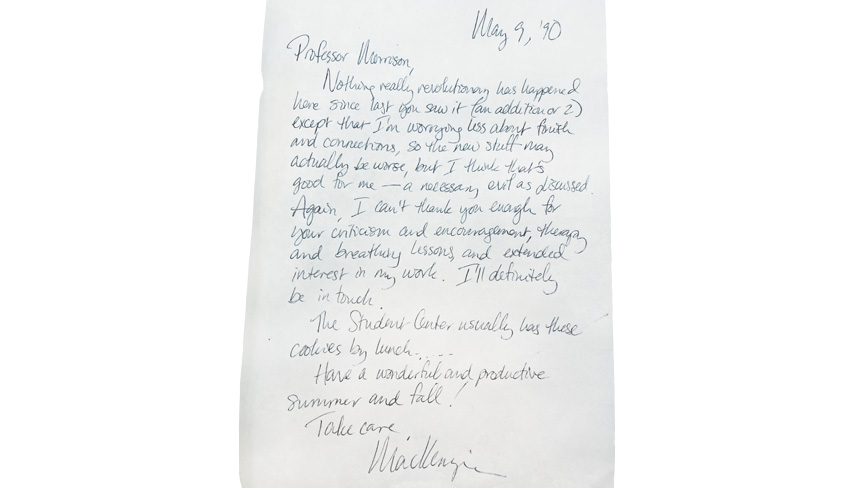 May 9, '90
Professor Morrison,
Nothing really revolutionary has happened
here since last you saw it (an addition or 2)
except that I'm worrying less about finish
and connections, so the new stuff may
actually be worse, but I think that's
good for me — a necessary evil as discussed.
Again, I can't thank you enough for
your criticism and encouragement, therapy
and breathing lessons, and extended
interest in my work. I'll definitely
be in touch.
The Student Center usually has these
cookies by lunch.....
Have a wonderful and productive
summer and fall!
Take care
MacKenzie